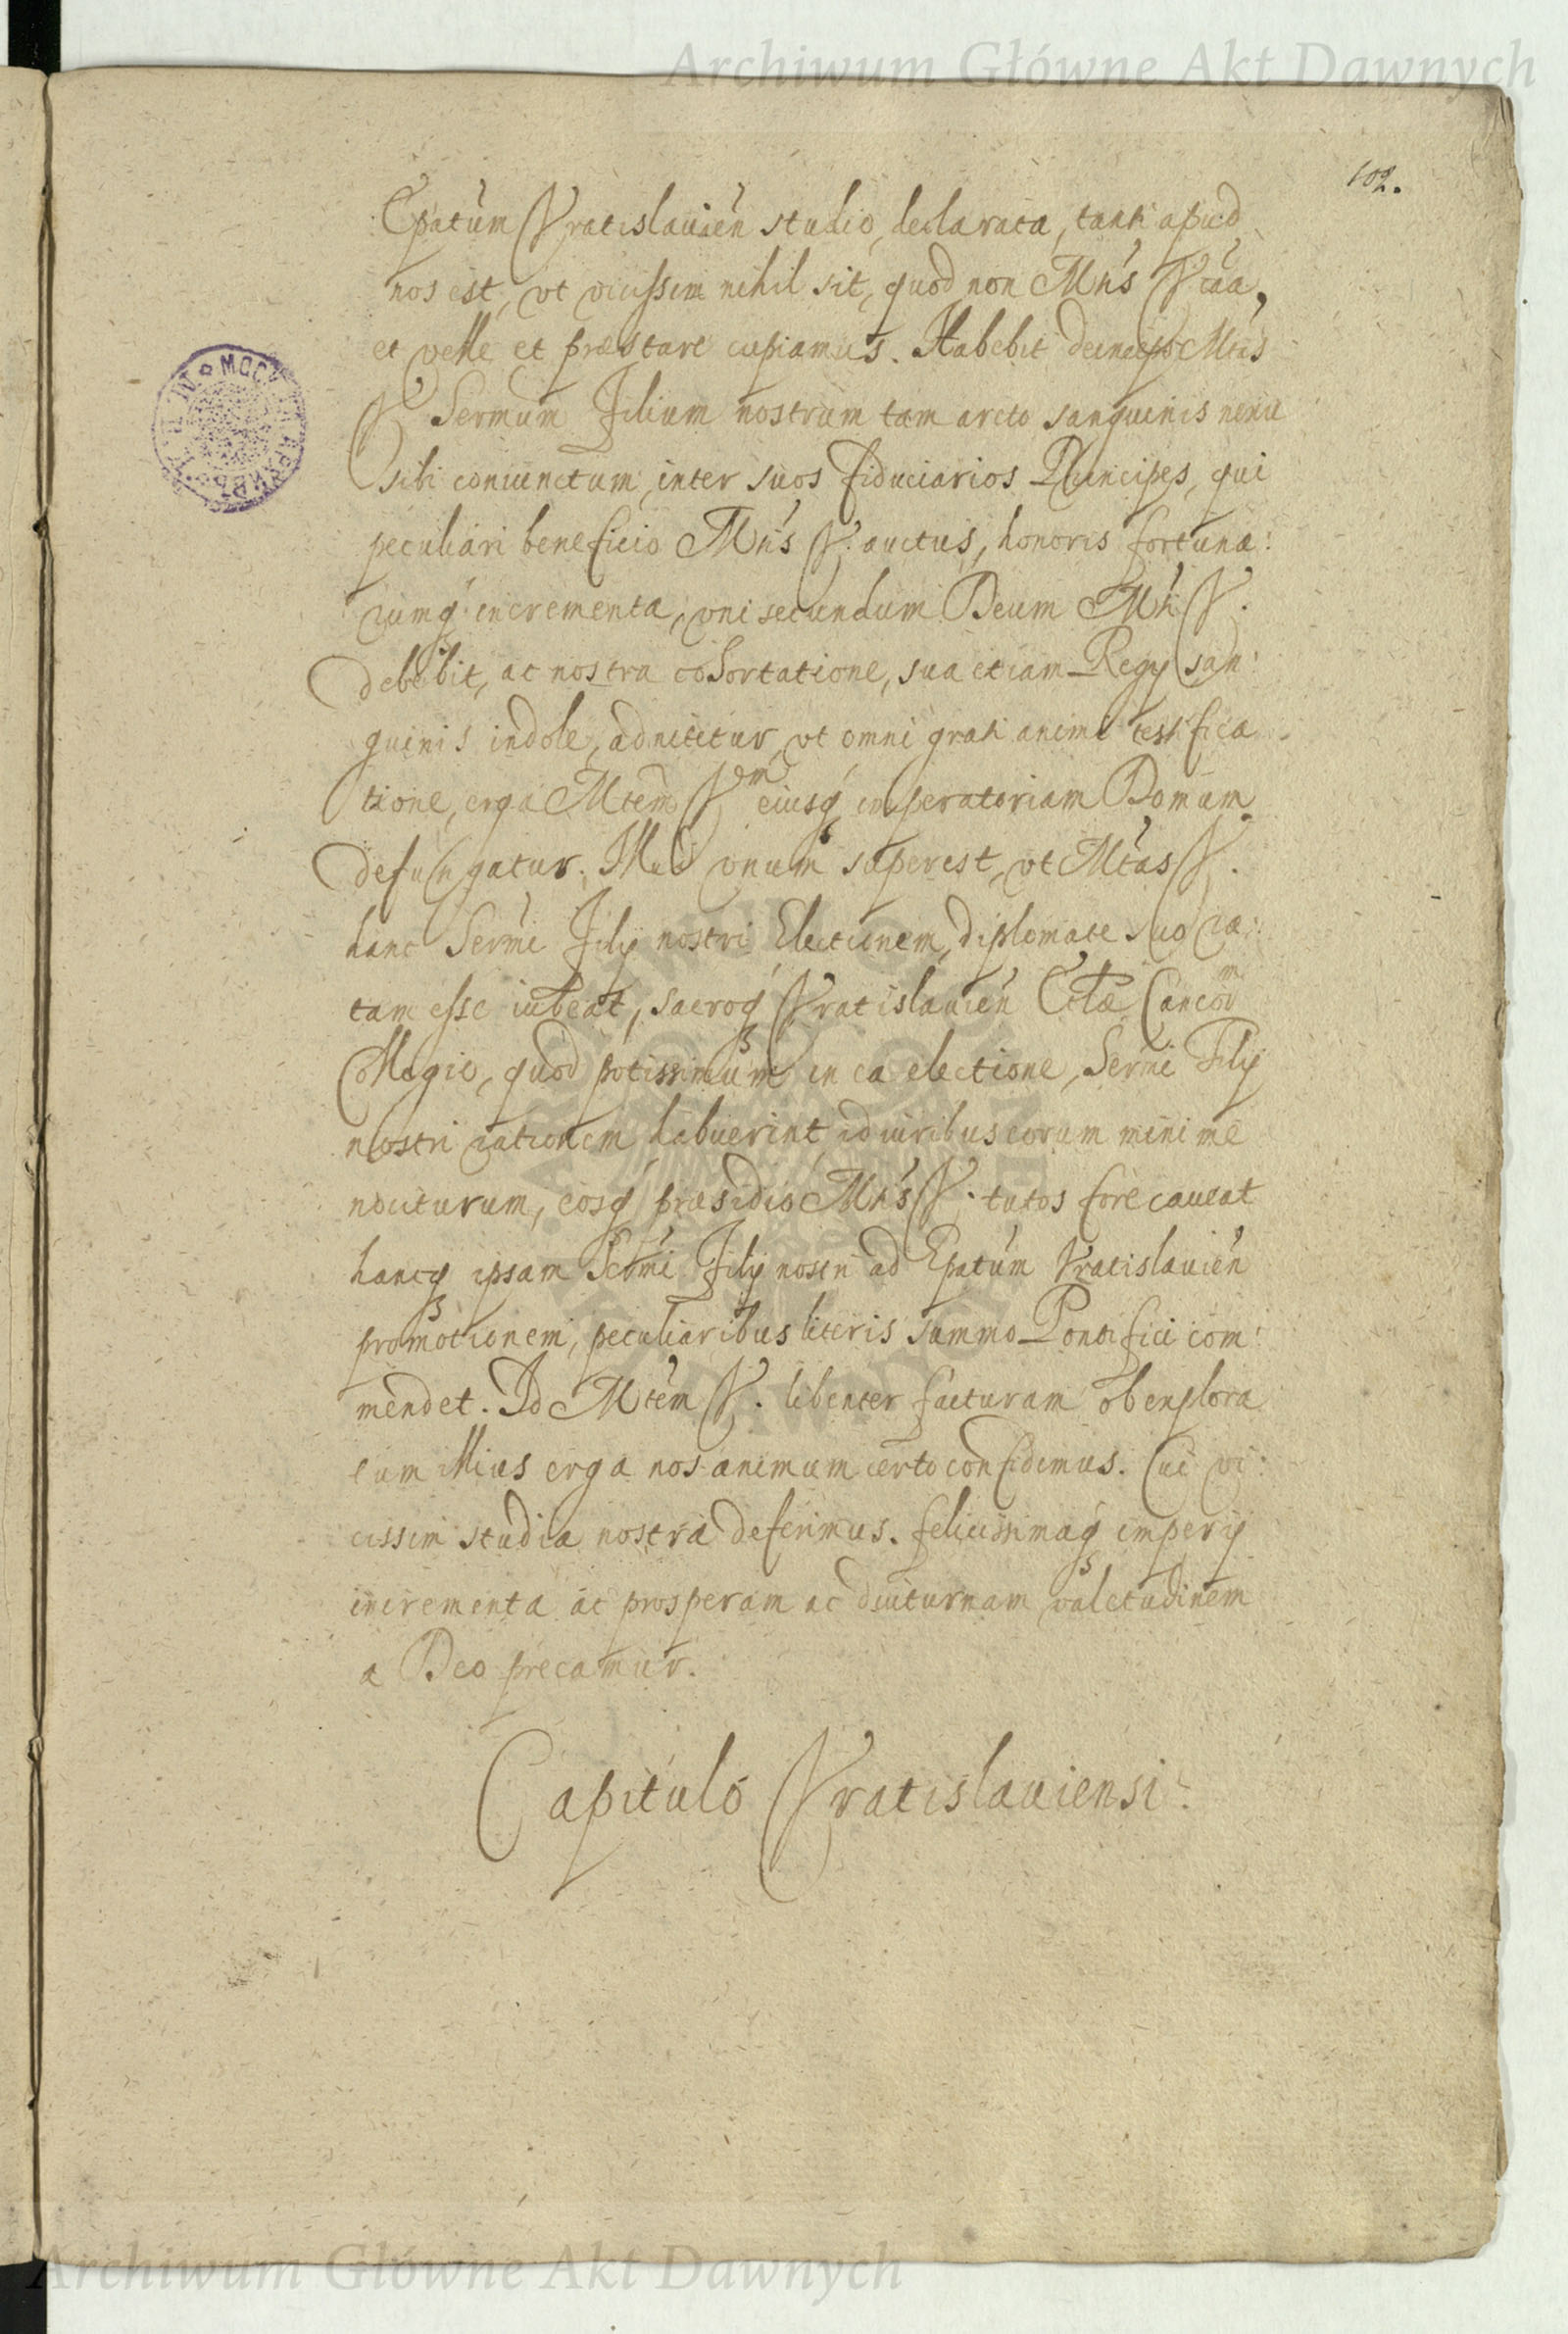 Archiwum Główne Akt Dawnych
102.
Epatum Vratislauien studio, declarata, tanti apud
nos est, vt vicissim nihil sit, quod non Mtis Vrae causa,
et velle et præstare cupiamus. Habebit deinceps Mtas
V. Sermum Filium nostrum tam arcto sanguinis nexu
sibi coniunctum, inter suos fiduciarios Principes, qui
peculiari beneficio Mtis V. auctus, honoris fortuna:
rumq incrementa, vni secundum Deum Mti V.
debebit, ac nostra cohortatione, sua etiam Regij san:
guinis indole, adnitetur, vt omni grati animi testifica
tione, erga Mtem V. eiusq imperatoriam Domum
defungatur. Illud vnum superest, vt Mtas V.
hanc Sermi Filij nostri Electionem, diplomate suo ra:
tam esse iubeat, sacroq Vratislauien Eccliæ Cancorum
Collegio, quod potissimum in ea electione, Sermi Filij
nostri rationem habuerint id iuribus eorum minime
nociturum, eosq præsidio Mtis V. tutos fore caueat
hancq ipsam Sermi Filij nostri ad Epatum Vratislauien
promotionem, peculiaribus literis summo Pontifici com:
mendet. Id Mtem V. libenter facturam ob explora
tum illius erga nos animum certo confidimus. Cui vi:
cissim studia nostra deferimus. felicissimaq imperij
incrementa ac prosperam ac diuturnam valetudinem
a Deo precamur.
Capitulo Vratislauiensi.
Archiwum Główne Akt Dawnych